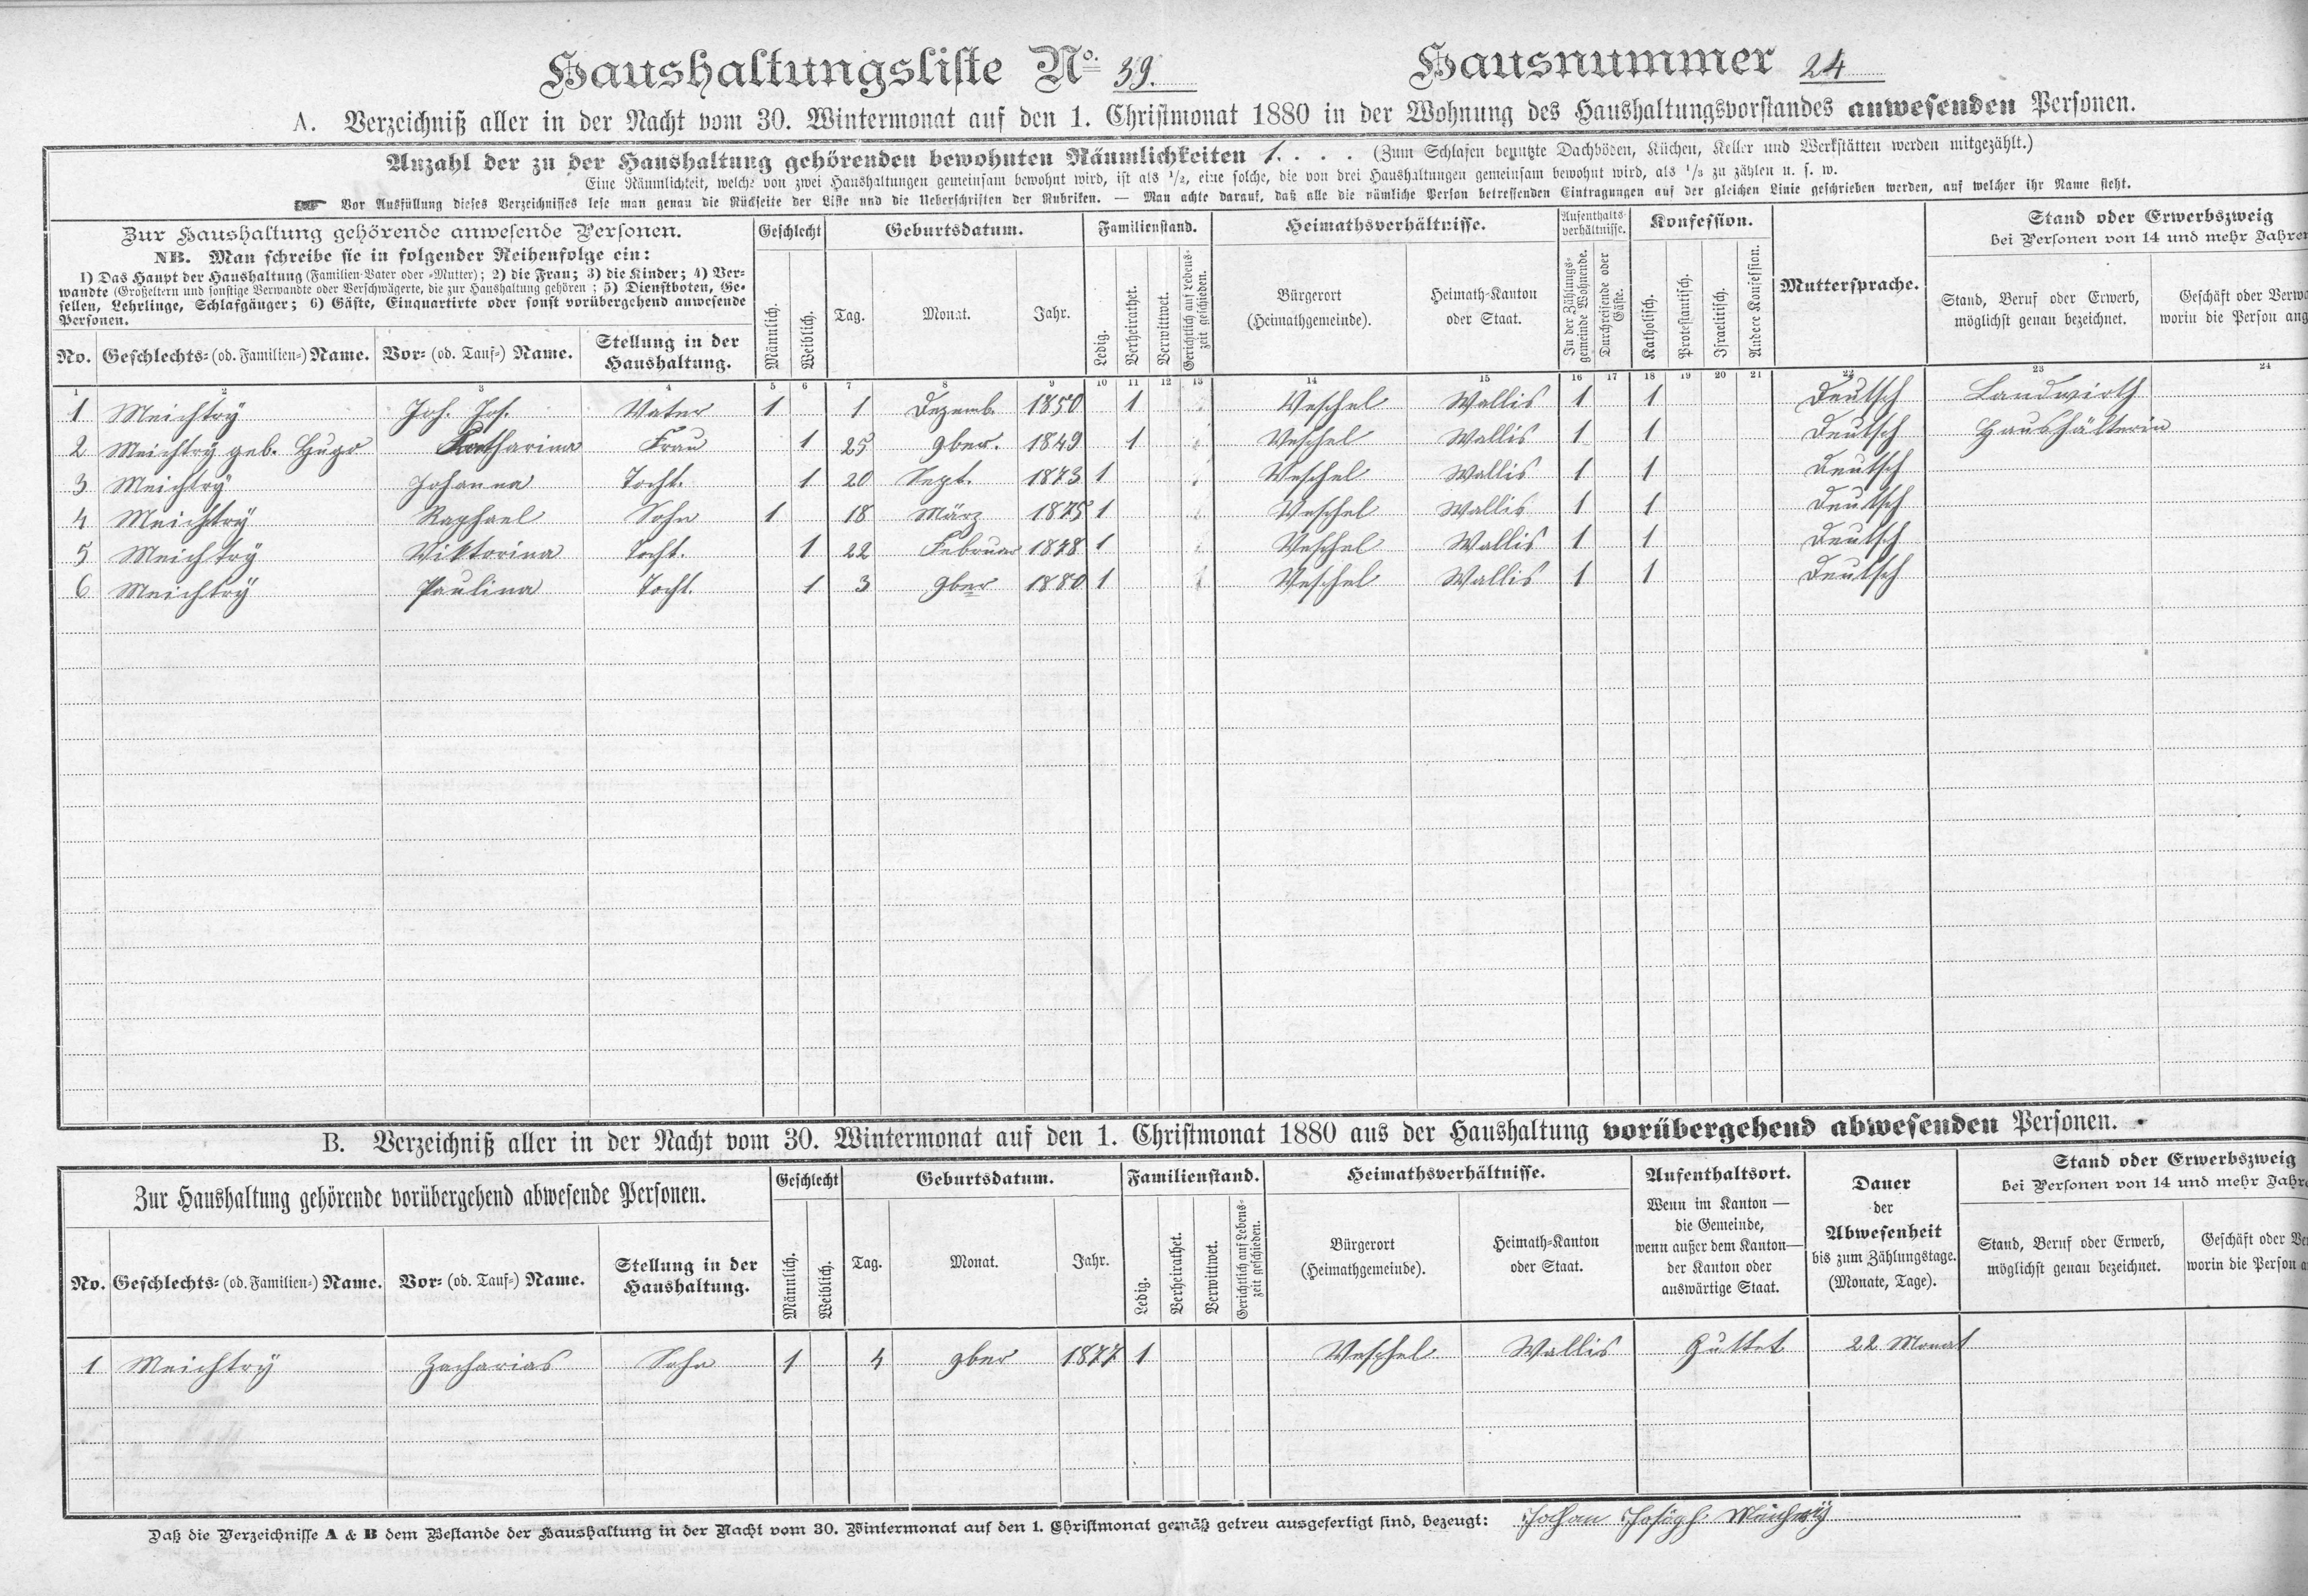 Haushaltungsliste No. 39. Hausnummer 24
A. Verzeichniß aller in der Nacht vom 30. Wintermonat auf den 1. Christmonat 1880 in der Wohnung des Haushaltungsvorstandes anwesenden Personen.
Anzahl der zu der Haushaltung gehörenden bewohnten Räumlichkeiten 1. . . . (Zum Schlafen benutzte Dachböden, Küchen, Keller und Werkstätten werden mitgezählt.)
Eine Räumlichkeit, welche von zwei Haushaltungen gemeinsam bewohnt wird, ist als 1/2, eine solche, die von drei Haushaltungen gemeinsam bewohnt wird, als 1/3 zu zählen u. s. w.
Vor Ausfüllung dieses Verzeichnisses lese man genau die Rückseite der Liste und die Ueberschriften der Rubriken. — Man achte darauf, daß alle die nämliche Person betreffenden Eintragungen auf der gleichen Linie geschrieben werden, auf welcher ihr Name steht.
Zur Haushaltung gehörende anwesende Personen.
NB. Man schreibe sie in folgender Reihenfolge ein:
1) Das Haupt der Haushaltung (Familien-Vater oder -Mutter); 2) die Frau; 3) die Kinder; 4) Ver-
wandte (Großeltern und sonstige Verwandte oder Verschwägerte, die zur Haushaltung gehören; 5) Dienstboten, Ge-
sellen, Lehrlinge, Schlafgänger; 6) Gäste, Einquartirte oder sonst vorübergehend anwesende
Personen.
No. Geschlechts- (od. Familien-) Name. Vor- (od. Tauf-) Name. Stellung in der Haushaltung.
Geschlecht
Männlich. Weiblich.
Geburtsdatum.
Tag. Monat. Jahr.
Familienstand.
Ledig. Verheirathet. Verwittwet. Gerichtlich auf Lebens-
zeit geschieden.
Heimathsverhältnisse.
Bürgerort
(Heimathgemeinde).
Heimath-Kanton
oder Staat.
Aufenthalts-
verhältnisse.
In der Zählungs-
gemeinde Wohnende.
Durchreisende oder
Gäste.
Konfession.
Katholisch. Protestantisch. Israelitisch. Andere Konfession.
Muttersprache.
Stand oder Erwerbszweig
bei Personen von 14 und mehr
Stand, Beruf oder Erwerb,
möglichst genau bezeichnet.
Geschäft oder
worin die Person
1 2 3 4 5 6 7 8 9 10 11 12 13 14 15 16 17 18 19 20 21 22 23 24
1 Meichtrÿ Joh. Jos. Vater 1 1 Dezemb. 1850 1 Veschel Wallis 1 1 Deutsch Landwirth
2 Meichtrÿ geb. Hugo Katharina Frau 1 25 9ber. 1849 1 Veschel Wallis 1 1 Deutsch Haushälterin
3 Meichtrÿ Johanna Tocht. 1 20 Sept. 1873 1 Veschel Wallis 1 1 Deutsch
4 Meichtrÿ Raphael Sohn 1 18 März 1875 1 Veschel Wallis 1 1 Deutsch
5 Meichtrÿ Viktorina Tocht. 1 22 Februar 1878 1 Veschel Wallis 1 1 Deutsch
6 Meichtrÿ Paulina Tocht. 1 3 9ber 1880 1 Veschel Wallis 1 1 Deutsch
B. Verzeichniß aller in der Nacht vom 30. Wintermonat auf den 1. Christmonat 1880 aus der Haushaltung vorübergehend abwesenden Personen.
Zur Haushaltung gehörende vorübergehend abwesende Personen.
No. Geschlechts- (od. Familien-) Name. Vor- (od. Tauf-) Name. Stellung in der Haushaltung.
Geschlecht
Männlich. Weiblich.
Geburtsdatum.
Tag. Monat. Jahr.
Familienstand.
Ledig. Verheirathet. Verwittwet. Gerichtlich auf Lebens-
zeit geschieden.
Heimathsverhältnisse.
Bürgerort
(Heimathgemeinde).
Heimath-Kanton
oder Staat.
Aufenthaltsort.
Wenn im Kanton —
die Gemeinde,
wenn außer dem Kanton—
der Kanton oder
auswärtige Staat.
Dauer
der
Abwesenheit
bis zum Zählungstage.
(Monate, Tage).
Stand oder Erwerbszweig
bei Personen von 14 und mehr
Stand, Beruf oder Erwerb,
möglichst genau bezeichnet.
Geschäft oder
worin die Person
1 Meichtrÿ Zacharias Sohn 1 4 9ber 1877 1 Veschel Wallis Guttet 22 Monat
Daß die Verzeichnisse A & B dem Bestande der Haushaltung in der Nacht vom 30. Wintermonat auf den 1. Christmonat gemäß getreu ausgefertigt sind, bezeugt: Johan Joseph Meichtrÿ